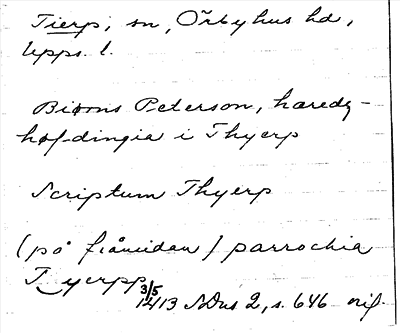 Tierp, sn, Örbyhus hd,
Upps. l.
Biorns Peterson, haredz-
hofdingia i Thyerp
Scriptum Thyerp
(på frånsidan) parrochia
Tyerpp
3/5
1413 SDns 2, s. 646 orif.